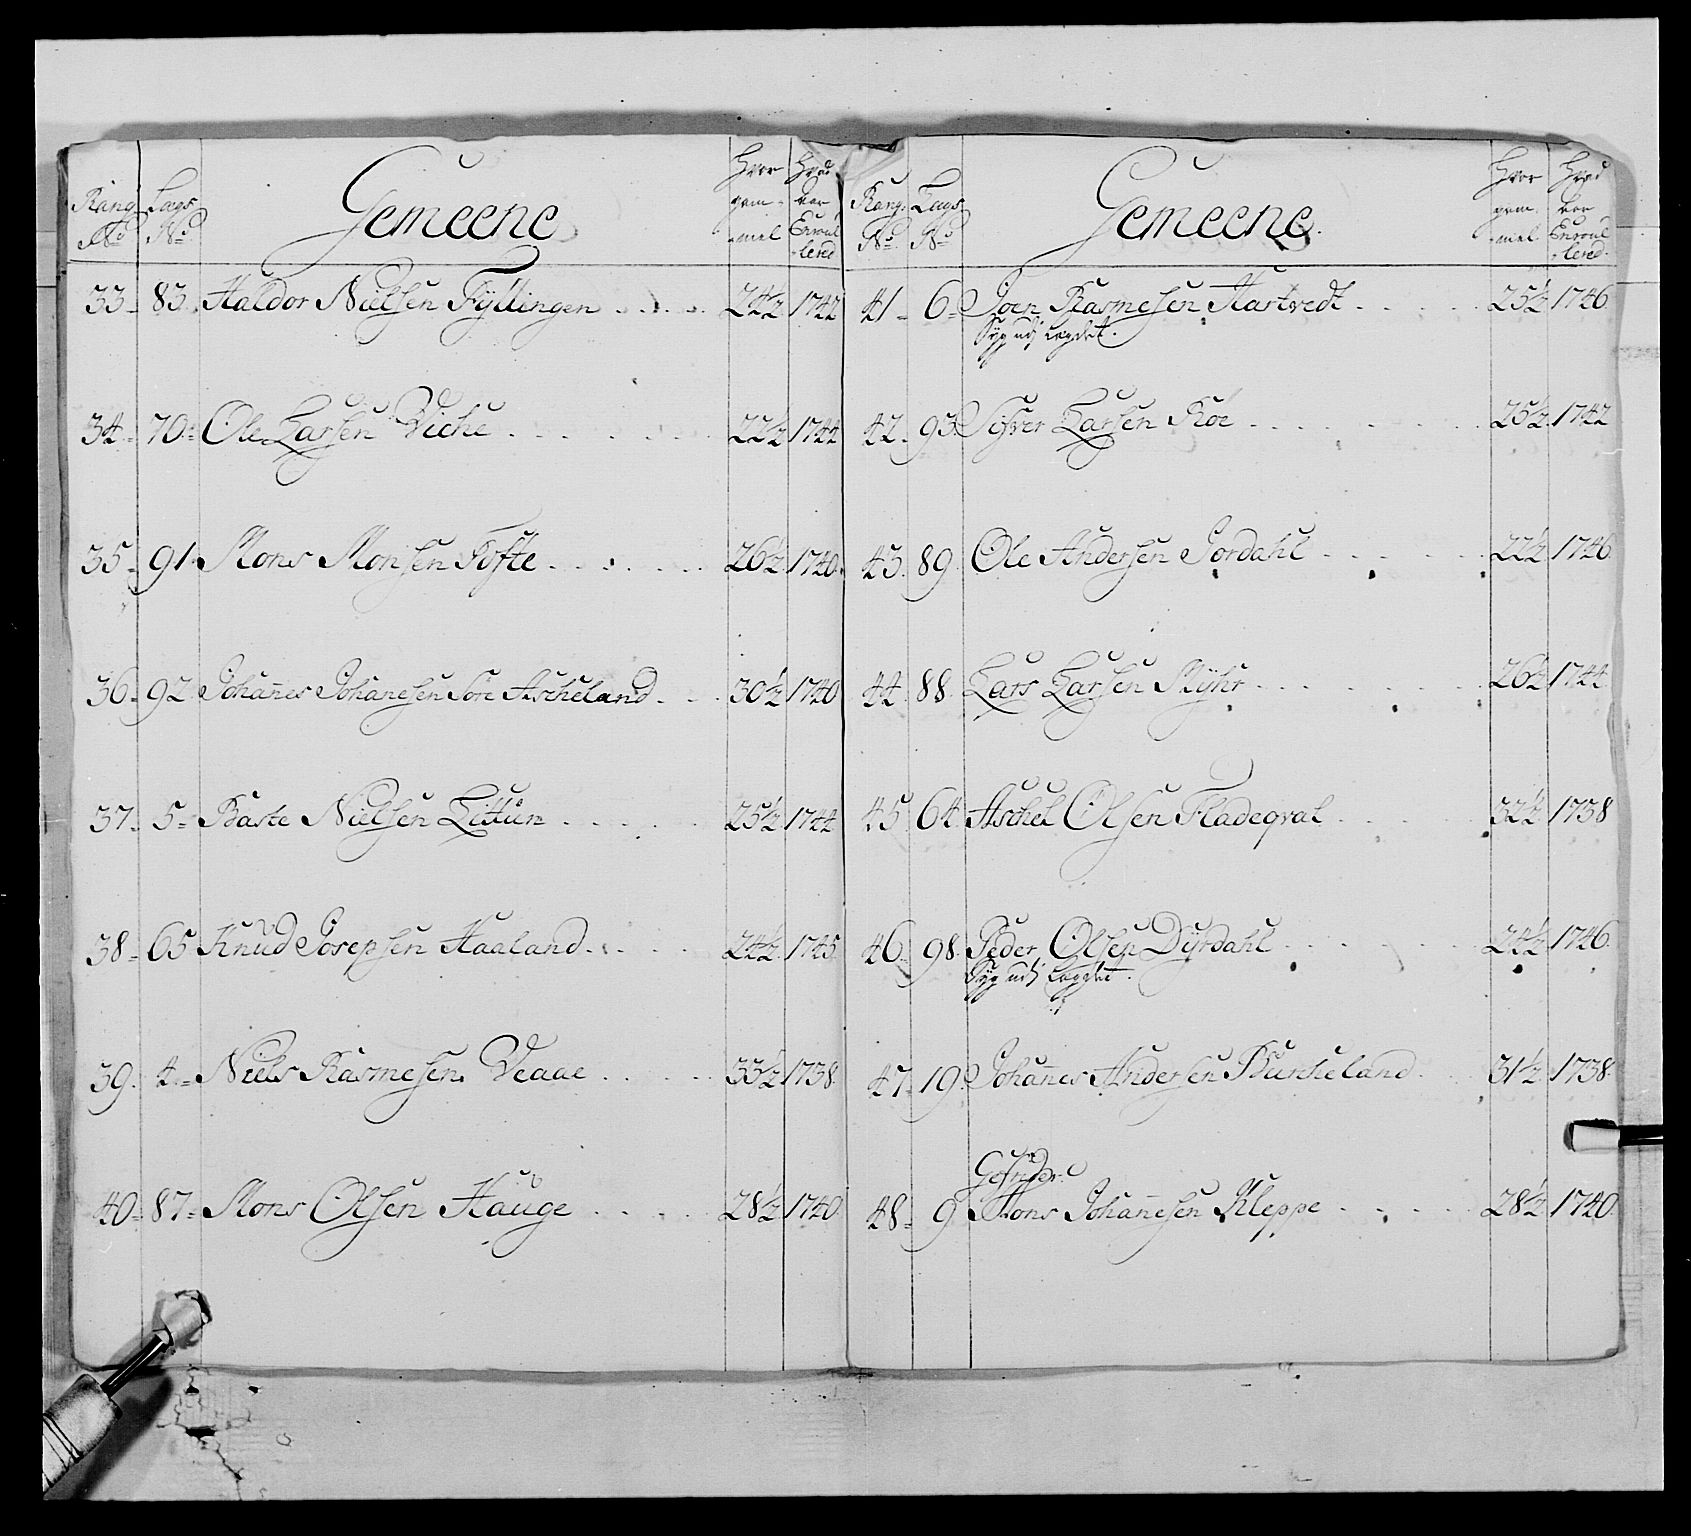 Rang No Lags No Gemeene Hvor gam-mel Hvad Aar Enroul-lered
33 83 Haldor Nielsen Fyllingen 24½ 1742
34 70 Ole Larsen Viche 22½ 1744
35 91 Mons Monsen Tofte 26½ 1740
36 92 Johañes Johanesen Søre Ascheland 30½ 1740
37 5 Baste Nielsen Littun 25½ 1744
38 65 Knud Josepsen Haaland 24½ 1745
39 4 Niels Rasmesen Veaae 33½ 1738
40 87 Mons Olsen Hauge 28½ 1740
Rang No Lags No Gemeene Hvor gam-mel Hvad Aar Enroul-lered
41 6 Joen Rasmesen Hartvedt 25½ 1746
Syg udj Legdet.
42 93 Sifver Larsen Røe 25½ 1742
43 89 Ole Andersen Jordahl 22½ 1746
44 88 Lars Larsen Myhr 26½ 1744
45 64 Aschel Olsen Fladeqval 32½ 1738
46 98 Peder Olsen Dyrdahl 24½ 1746
Syg udj Legdet.
47 19 Johañes Andersen Burkeland 31½ 1738
48 9 Mons Johañesen Kleppe 28½ 1740